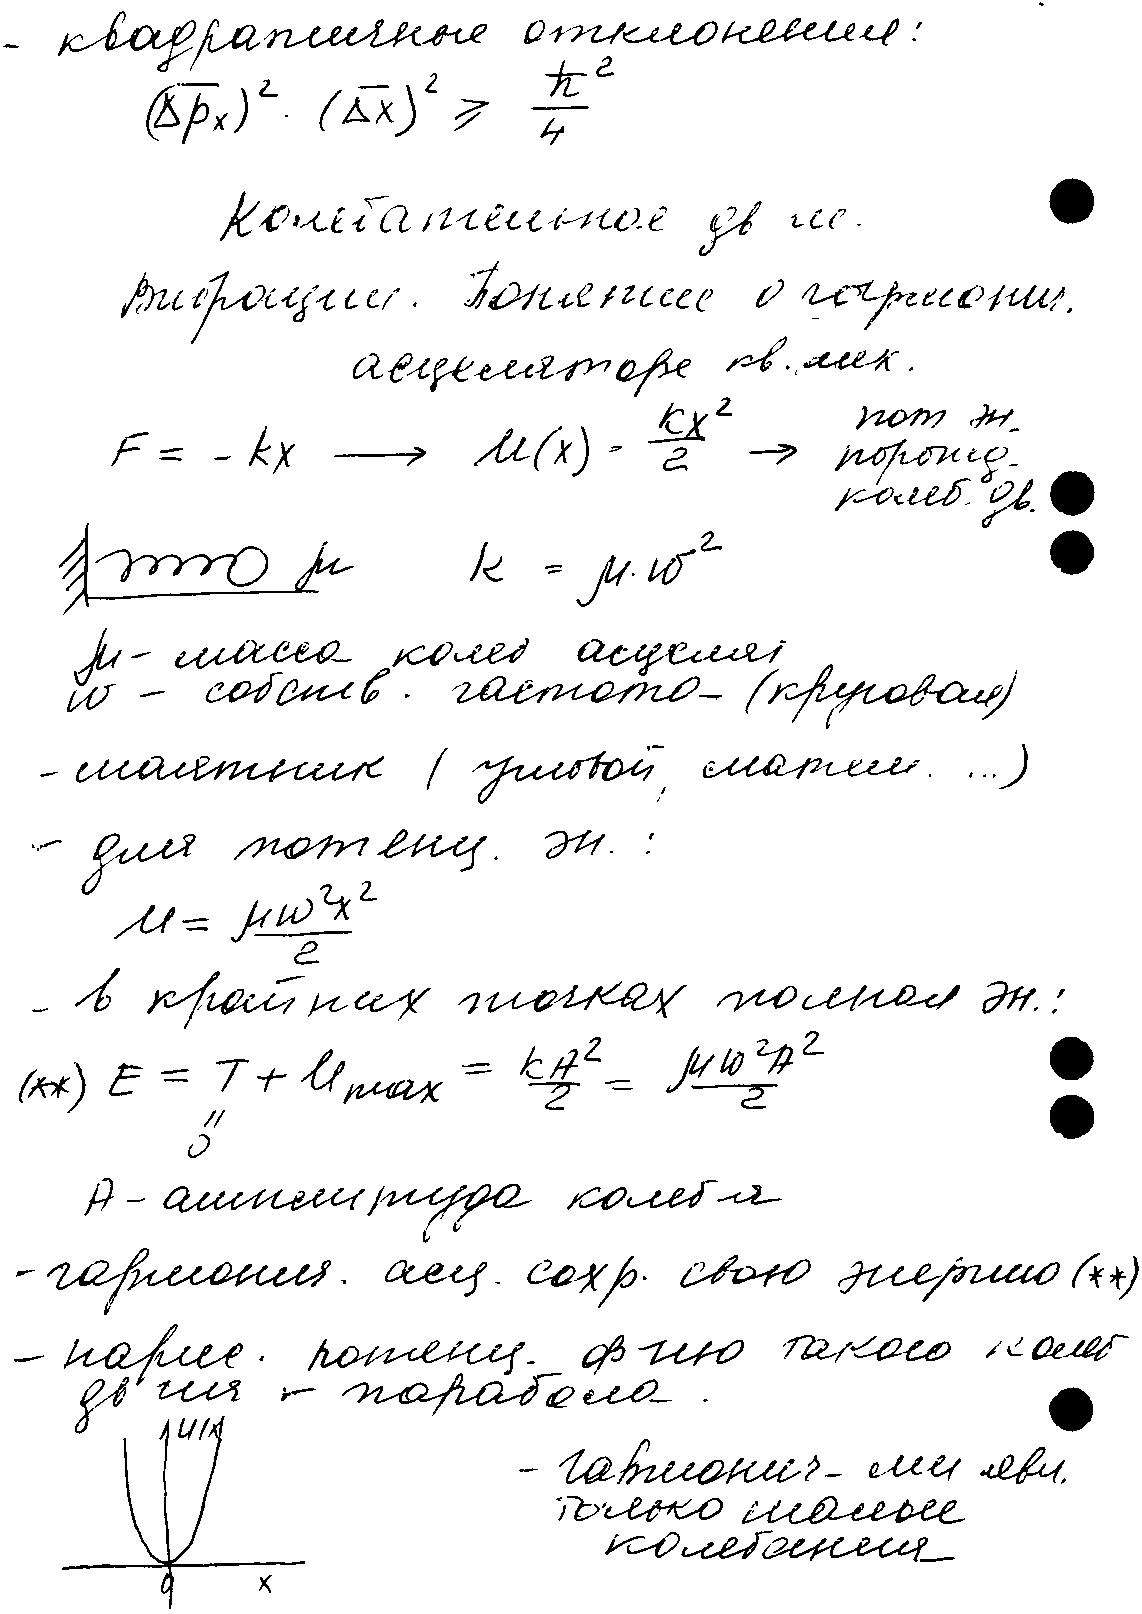 - квадратичные отклонения:
(Δp̅ₓ)² · (Δ̅x̅)² ⩾ ħ²/4
Колебательное дв ие.
Вибрации. Понятие о гармонич.
асцеляторе кв. мех.
F = - kx → U(x) = kx²/2 → пот эн. порожд. колеб. дв.
μ k = μ·ω²
μ - масса колеб асцелят
ω - собств. частота - (круговая)
- маятник ( угловой, матем. ...)
- для потенц. эн. :
U = μω²x²/2
- в крайних точках полная эн.:
(**) E = T + U max = kA²/2 = μω²A²/2
"
0
A - амплитуда колеб-я
- гармонич. асц. сохр. свою энергию (**)
- нарис. потенц. ф-ию такого колеб
дв ия - парабола.
U(x)
0 x
- гармонич-ми явл.
только малые
колебания